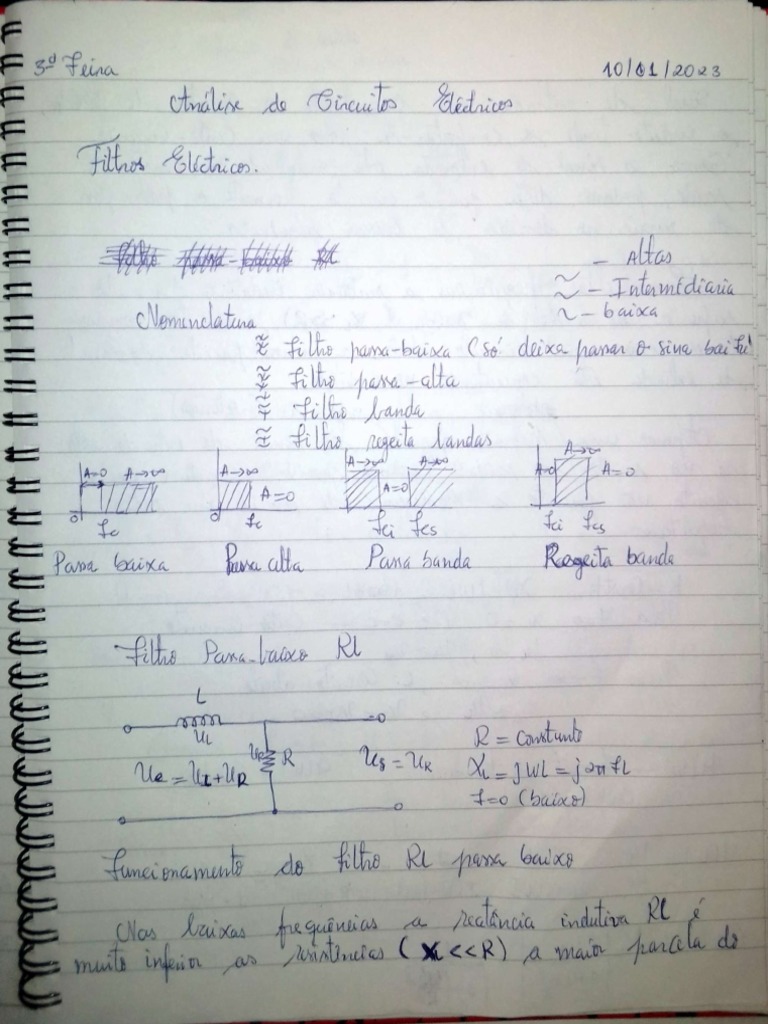 3ª Feira 10/01/2023
Análise de Circuitos Eléctricos
Filtros Eléctricos.
– Altas
≈ – Intermédiaria
~ – baixa
Nomenclatura
≋ filtro passa-baixa (só deixa passar o sina bai
≋ filtro passa-alta
≋ filtro banda
≋ filtro regeita bandas
A=0 A→∞ A→∞ A=0 A→∞ A=0 A→∞ A=0 A→∞ A=0
0 fc 0 fc fci fcs fci fcs
Passa baixa Passa alta Passa banda Regeita banda
Filtro Passa-baixo RL
L
UL
R = constante
UR R
Ue = UL + UR US = UR XL = jWL = j2πfL
f=0 (baixo)
funcionamento do filtro RL passa baixo
Nas baixas frequências a reatância indutiva RL é
muito inferior as resistências (XL<<R) a maior parcela do